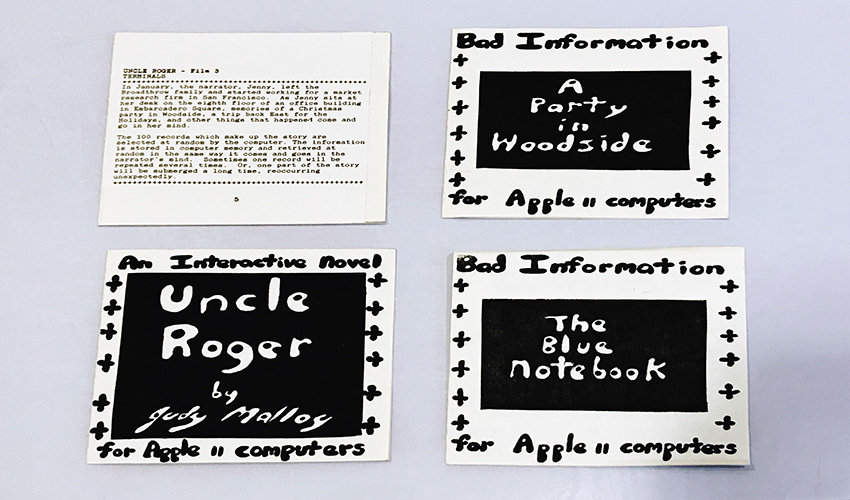 UNCLE ROGER - File 3
TERMINALS
In January, the narrator, Jenny, left the
Broadthrow family and started working for a market
research firm in San Francisco. As Jenny sits at
her desk on the eighth floor of an office building
in Embarcadero Square, memories of a Christmas
party in Woodside, a trip back East for the
Holidays, and other things that happened come and
go in her mind.
The 100 records which make up the story are
selected at random by the computer. The information
is stored in computer memory and retrieved at
random in the same way it comes and goes in the
narrator's mind. Sometimes one record will be
repeated several times. Or, one part of the story
will be submerged a long time, reoccurring
unexpectedly.
5
Bad Information
A
Party
in
Woodside
for Apple II computers
An Interactive Novel
Uncle
Roger
by
Judy Malloy
for Apple II computers
Bad Information
The
Blue
Notebook
for Apple II computers